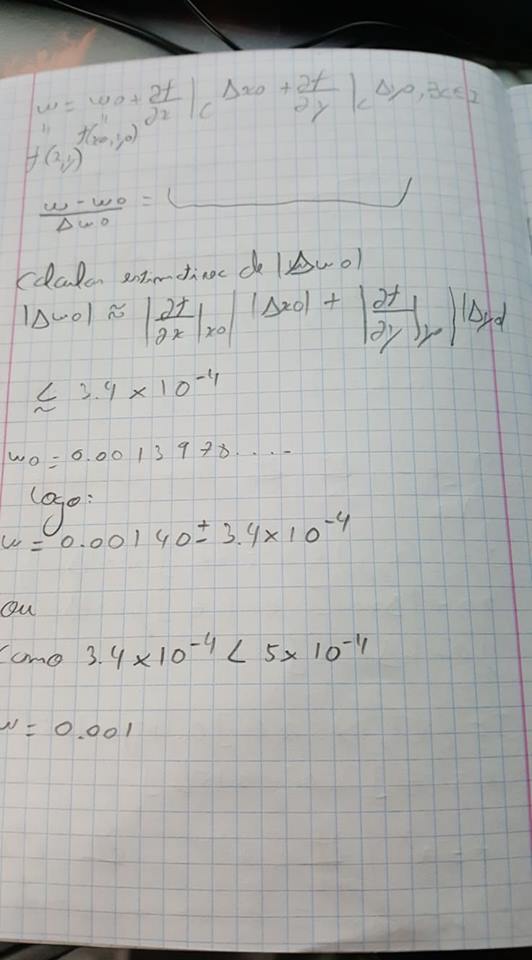 w = w0 + ∂f/∂x |c Δx0 + ∂f/∂y |c Δy0, ∃c∈I
" "
f(x,y) f(x0,y0)
w - w0 / Δw0 =
Calcular estimativa de |Δw0|
|Δw0| ≈ |∂f/∂x|x0| |Δx0| + |∂f/∂y|y0| |Δy0|
≲ 3.4 × 10^-4
w0 = 0.0013978....
logo:
w = 0.00140 ± 3.4×10^-4
ou
Como 3.4×10^-4 < 5×10^-4
w = 0.001